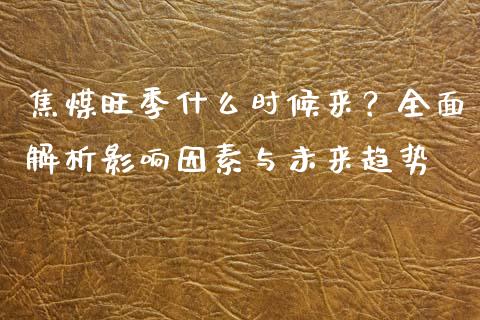 焦煤旺季什么时候来？全面
解析影响因素与未来趋势